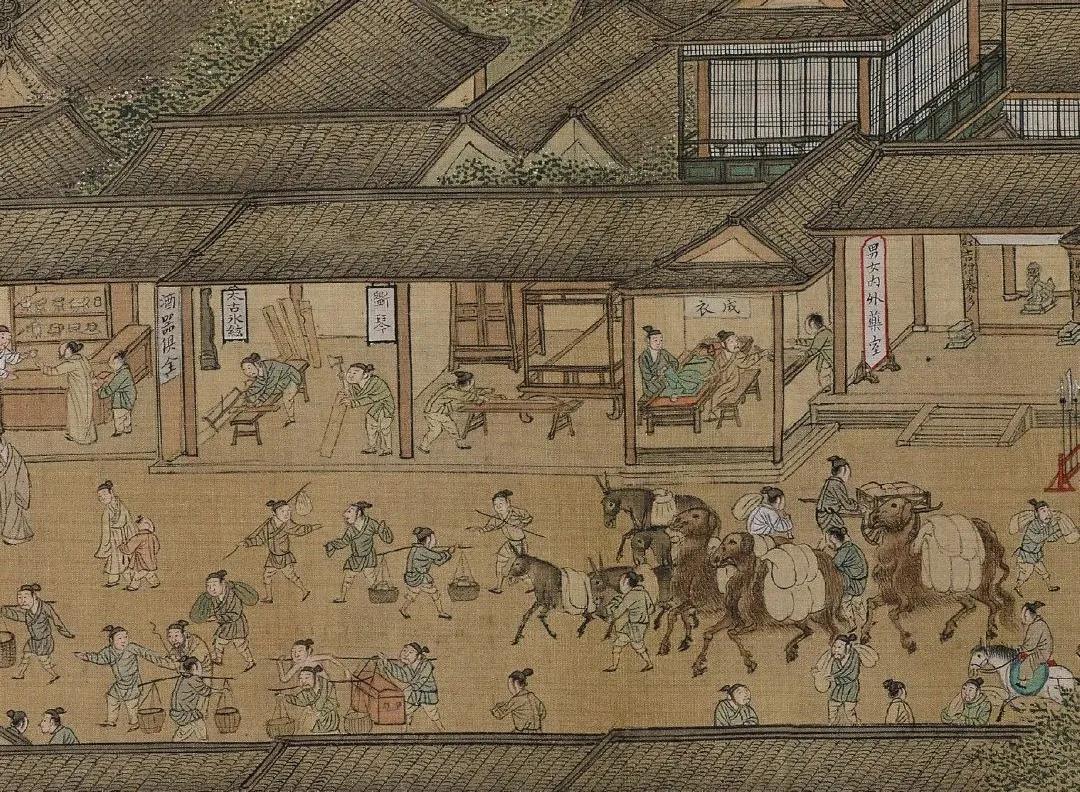 男女内外藥室
成衣
斵琴
太古氷絃
酒器俱全